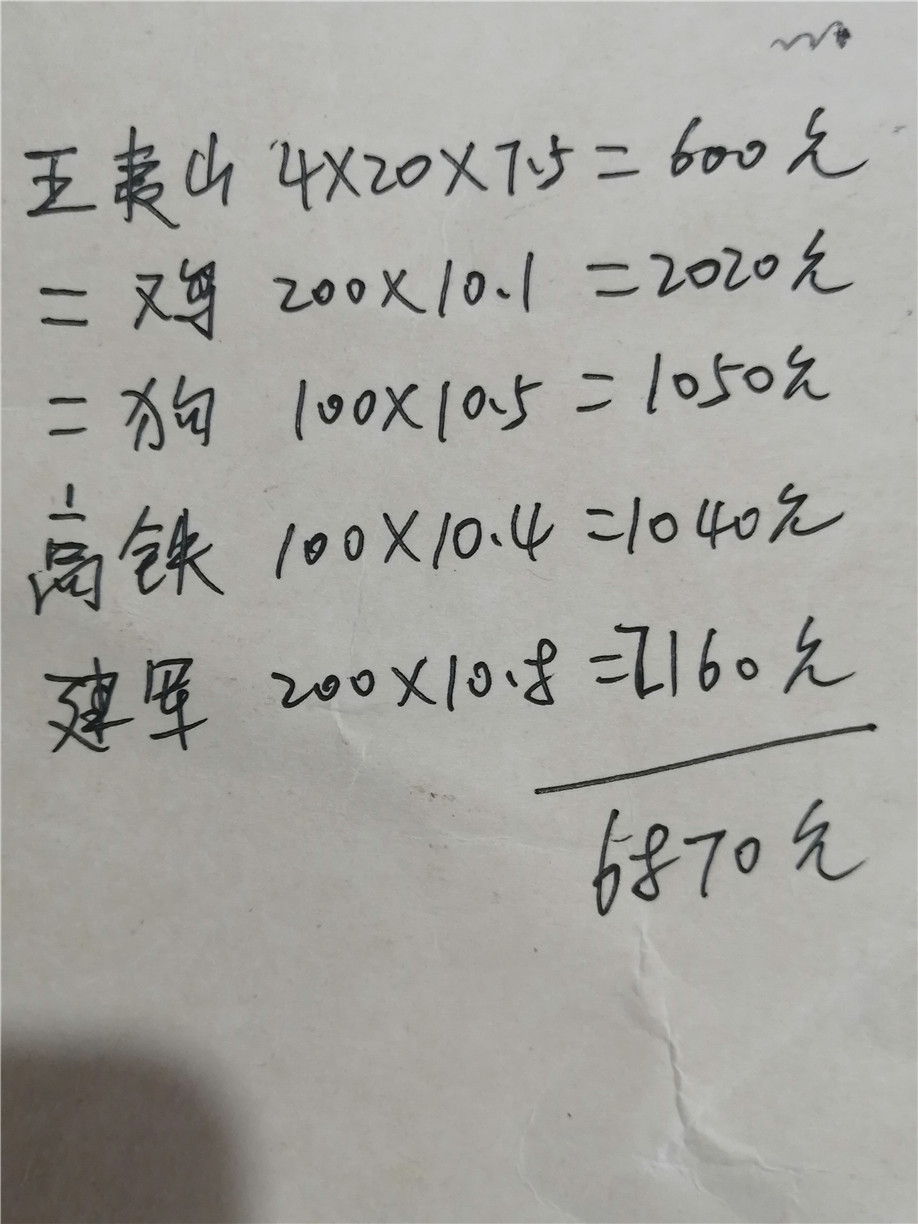 王夷山 4×20×7.5=600元
二鸡 200×10.1=2020元
二狗 100×10.5=1050元
高铁 100×10.4=1040元
建军 200×10.8=2160元
6870元